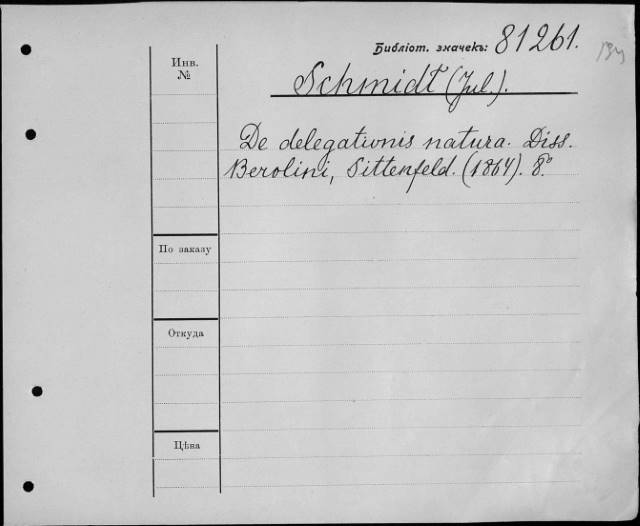 Библіот. значекъ: 81261.
Инв.
№
Schmidt (Jul.).
De delegationis natura. Diss.
Berolini, Sittenfeld. (1864). 8°.
По заказу
Откуда
Цѣна